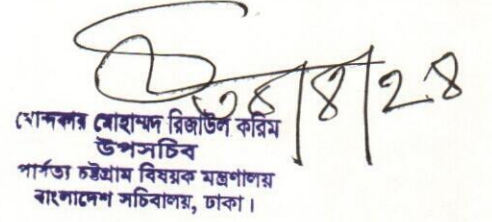 ৩৪/৪/২৪
খোন্দকার মোহাম্মদ রিজাউল করিম
উপসচিব
পার্বত্য চট্টগ্রাম বিষয়ক মন্ত্রণালয়
বাংলাদেশ সচিবালয়, ঢাকা।